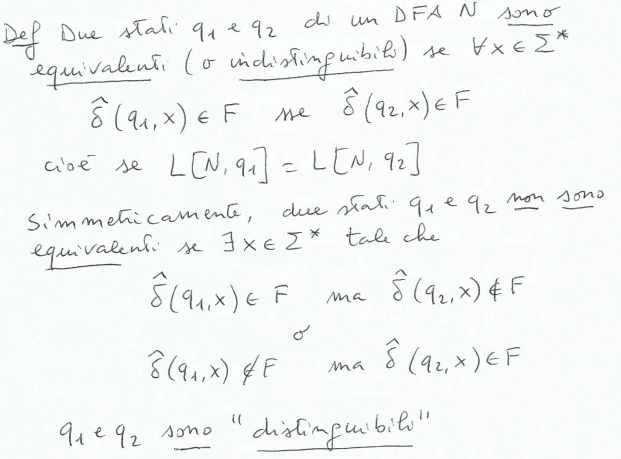 Def Due stati q₁ e q₂ di un DFA N sono
equivalenti (o indistinguibili) se ∀x ∈ Σ*
δ̂(q₁,x) ∈ F sse δ̂(q₂,x) ∈ F
cioè se L[N, q₁] = L[N, q₂]
Simmetricamente, due stati q₁ e q₂ non sono
equivalenti se ∃x ∈ Σ* tale che
δ̂(q₁,x) ∈ F ma δ̂(q₂,x) ∉ F
o
δ̂(q₁,x) ∉ F ma δ̂(q₂,x) ∈ F
q₁ e q₂ sono "distinguibili"